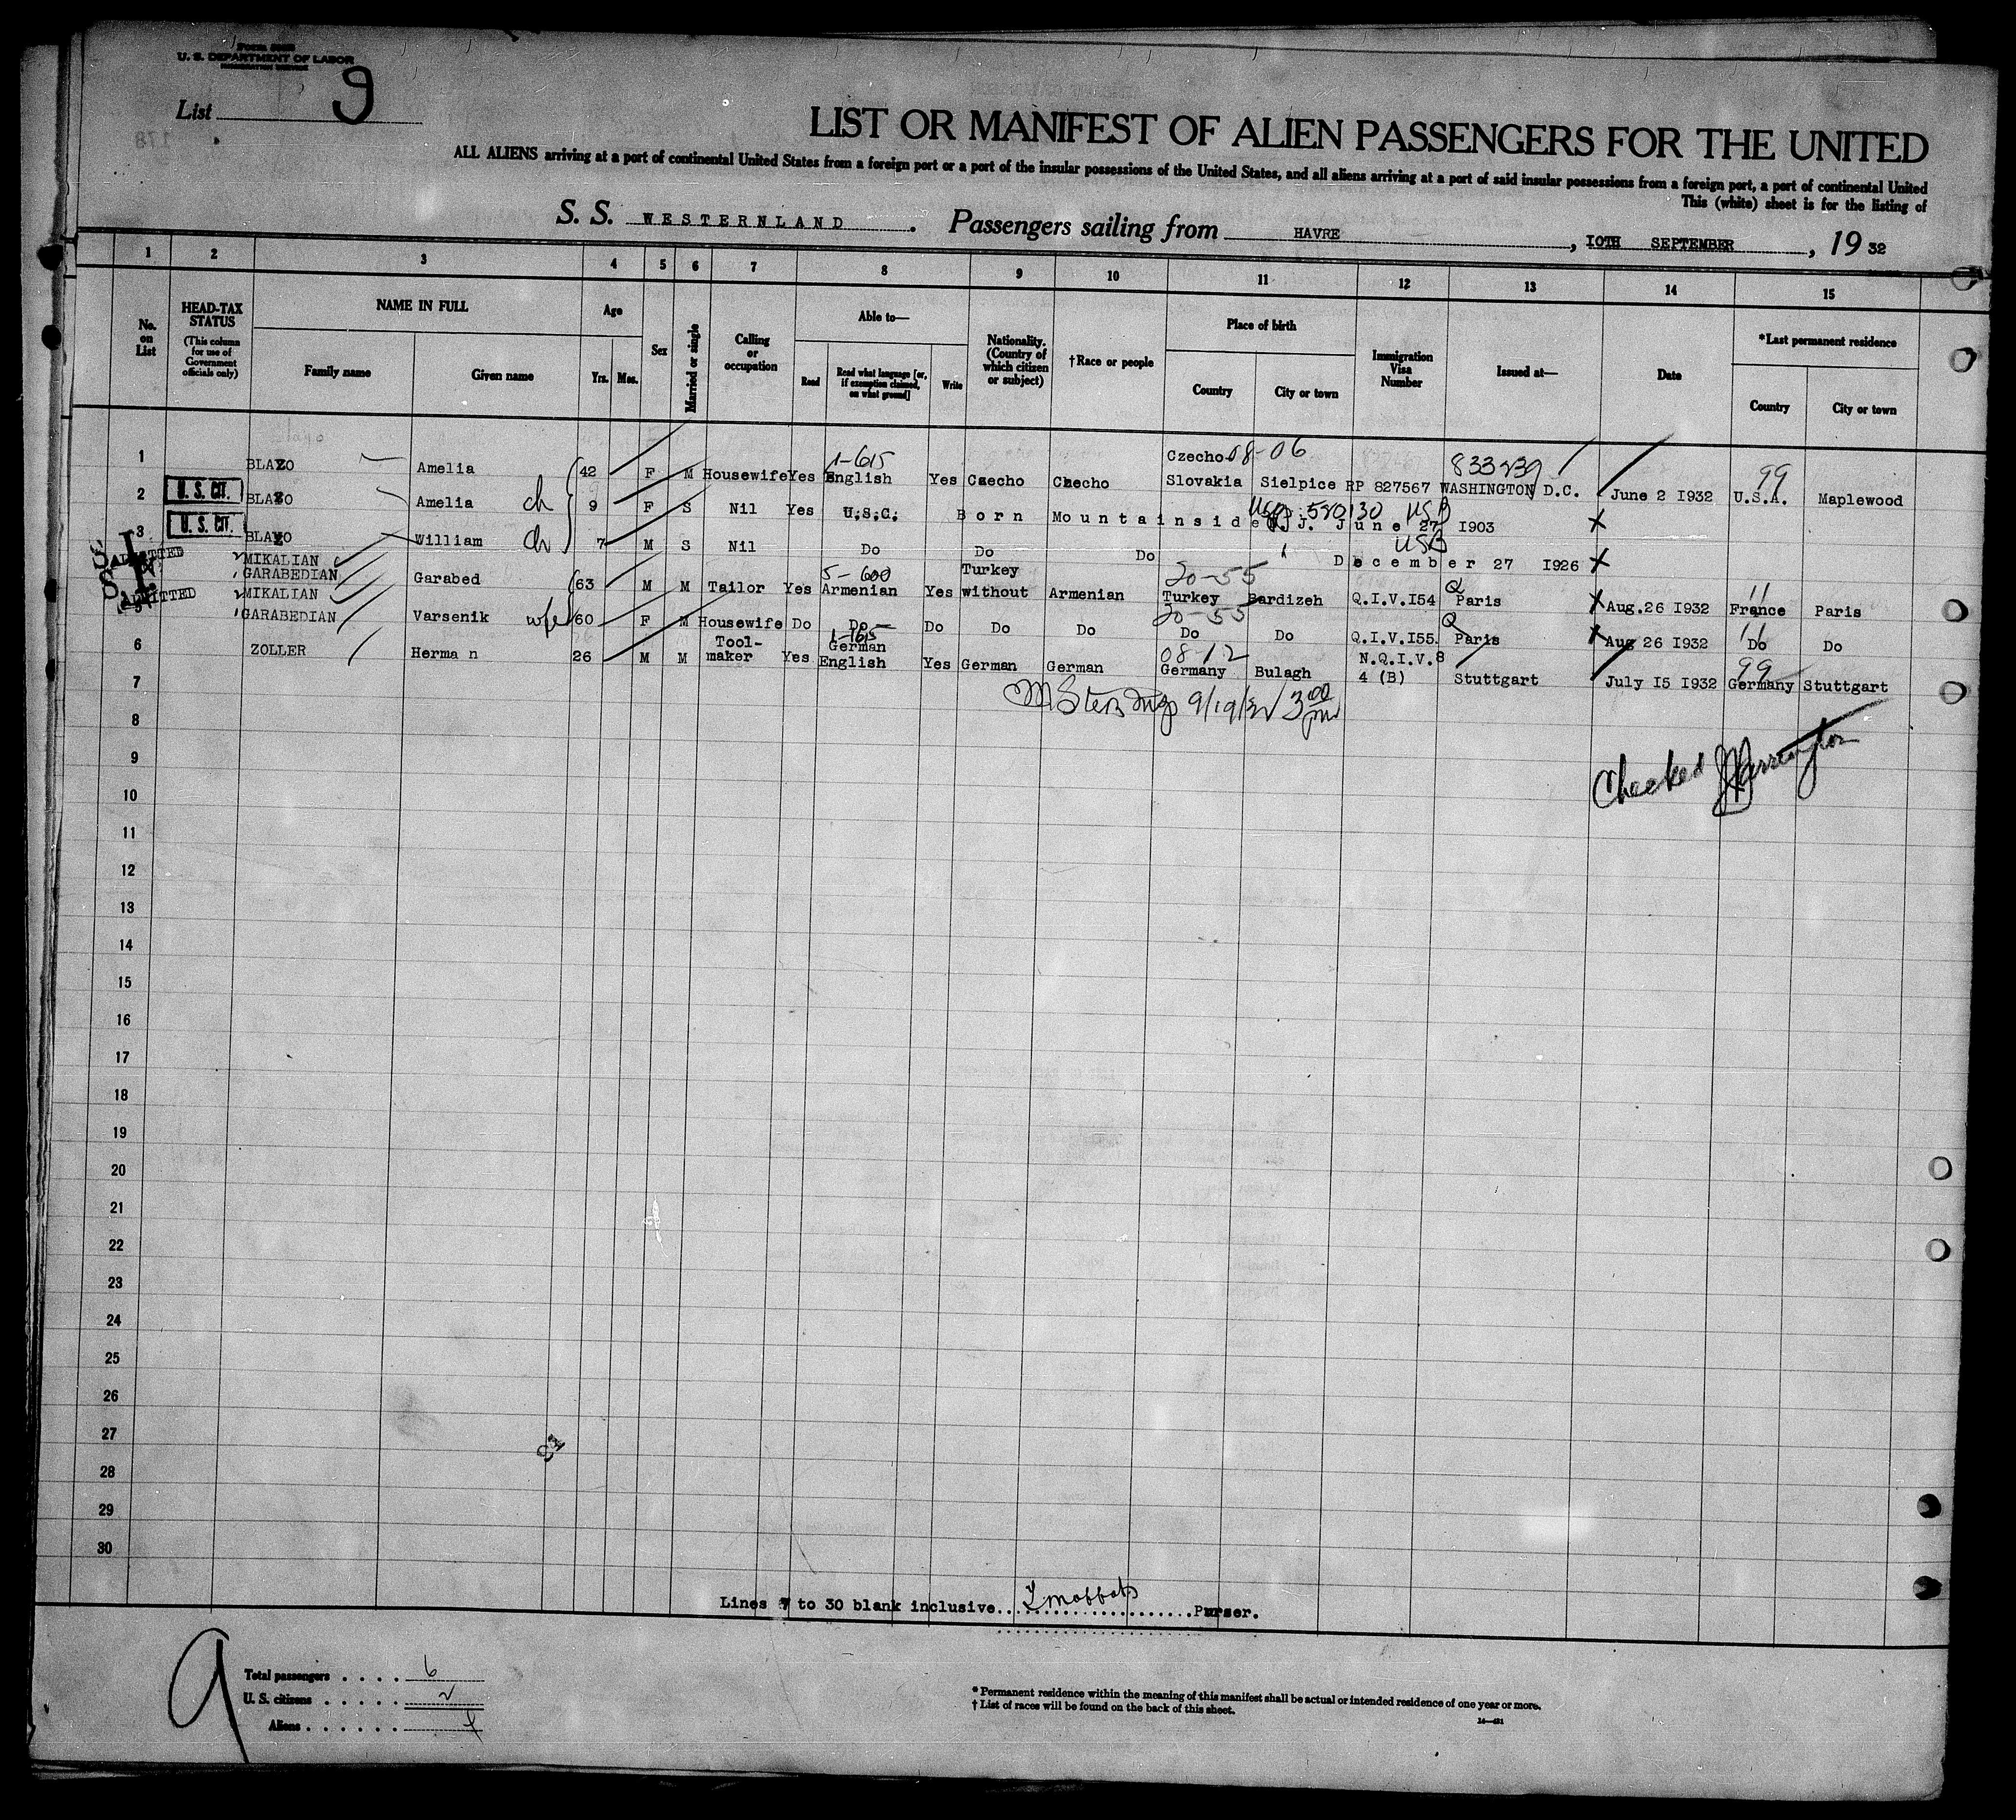 Form 500B
U. S. DEPARTMENT OF LABOR
IMMIGRATION SERVICE
List 9
178
LIST OR MANIFEST OF ALIEN PASSENGERS FOR THE UNITED
ALL ALIENS arriving at a port of continental United States from a foreign port or a port of the insular possessions of the United States, and all aliens arriving at a port of said insular possessions from a foreign port, a port of continental United
This (white) sheet is for the listing of
S. S. WESTERNLAND. Passengers sailing from HAVRE, I0TH SEPTEMBER, 19 32
1 2 3 4 5 6 7 8 9 10 11 12 13 14 15
No. on List
HEAD-TAX STATUS (This column for use of Government officials only)
NAME IN FULL
Family name Given name
Age
Yrs. Mos.
Sex
Married or single
Calling or occupation
Able to—
Read Read what language [or, if exemption claimed, on what ground] Write
Nationality. (Country of which citizen or subject)
†Race or people
Place of birth
Country City or town
Immigration Visa Number
Issued at—
Date
*Last permanent residence
Country City or town
1-615 Czecho 08-06 833239 99
1 BLAZO Amelia 42 F M Housewife Yes English Yes Czecho Checho Slovakia Sielpice RP 827567 WASHINGTON D.C. June 2 I932 U.S.A. Maplewood
580130 USB
2 U. S. CIT. BLAZO Amelia ch 9 F S Nil Yes U.S.C. Born Mountainside N.J. June 27 I903
USB
3 U. S. CIT. BLAZO William ch 7 M S Nil Do Do Do December 27 I926
ADMITTED MIKALIAN 5-600 Turkey 20-55 Q 11
GARABEDIAN Garabed 63 M M Tailor Yes Armenian Yes without Armenian Turkey Bardizeh Q.I.V.I54 Paris Aug.26 I932 France Paris
ADMITTED MIKALIAN 20-55 Q 11
GARABEDIAN Varsenik wife 60 F M Housewife Do Do Do Do Do Do Do Q.I.V.I55. Paris Aug 26 I932 Do Do
1-615 Tool- German 08-12 N.Q.I.V.8 99
6 ZOLLER Herma n 26 M M maker Yes English Yes German German Germany Bulagh 4 (B) Stuttgart July I5 I932 Germany Stuttgart
7
9/19/32 3 00 pm
8
9
Checked
10
11
12
13
14
15
16
17
18
19
20
21
22
23
24
25
26
27
28
29
30
Lines 7 to 30 blank inclusive......................Purser.
9
Total passengers . . . . 6
U. S. citizens . . . . . 2
Aliens . . . . . . 4
* Permanent residence within the meaning of this manifest shall be actual or intended residence of one year or more.
† List of races will be found on the back of this sheet.